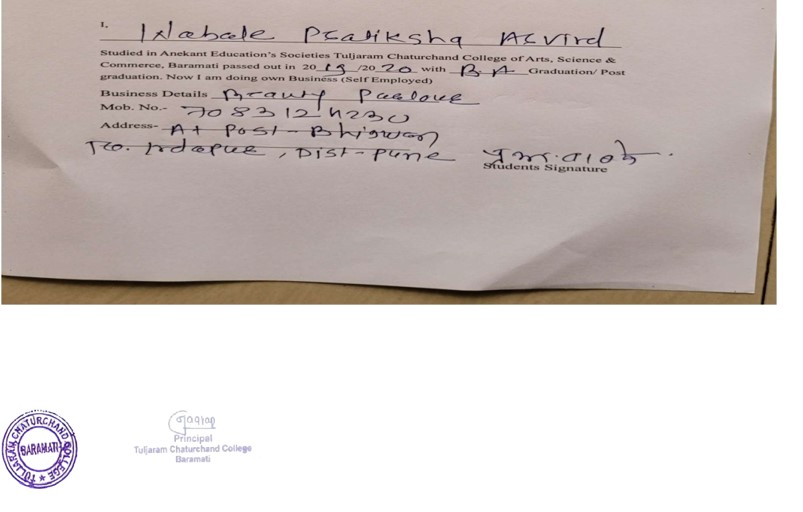 I, Wabale Pratiksha Arvind
Studied in Anekant Education's Societies Tuljaram Chaturchand College of Arts, Science &
Commerce, Baramati passed out in 2019/2020 with B.A Graduation/ Post
graduation. Now I am doing own Business (Self Employed)
Business Details Beauty Parlour
Mob. No.- 7083124230
Address- At Post - Bhigwan
Tal. Indapur, Dist - Pune
Students Signature
TULJARAM CHATURCHAND COLLEGE
BARAMATI
Principal
Tuljaram Chaturchand College
Baramati